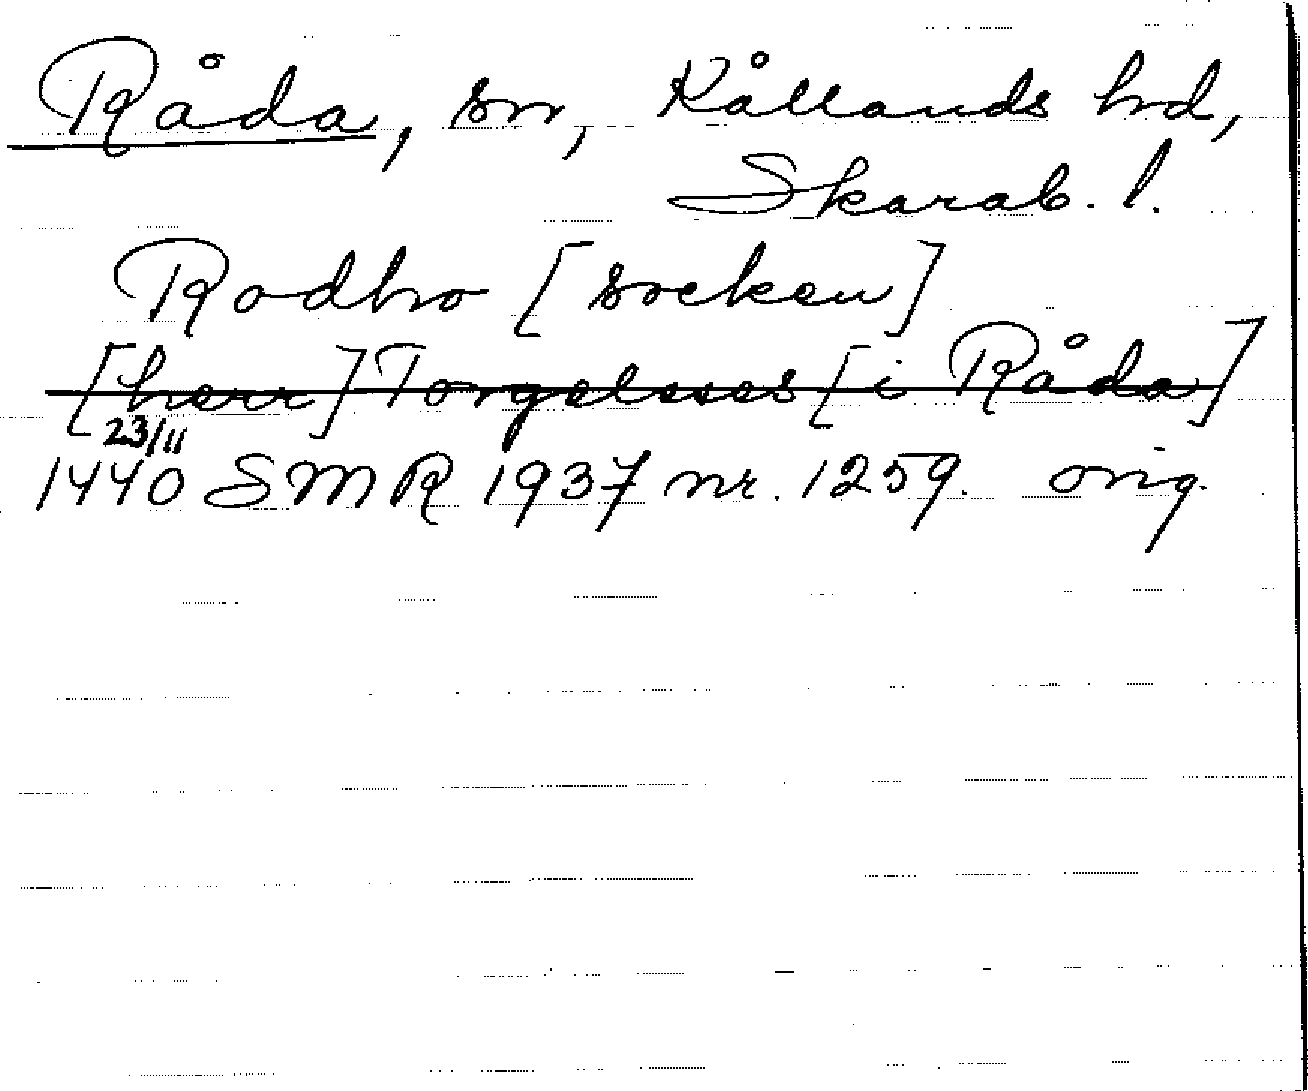 Råda, sn, Kållands hd,
Skarab. l.
Rodho [socken]
[herr] Torgelsses [i Råda]
23/11
1440 SMR 1937 nr. 1259. orig.